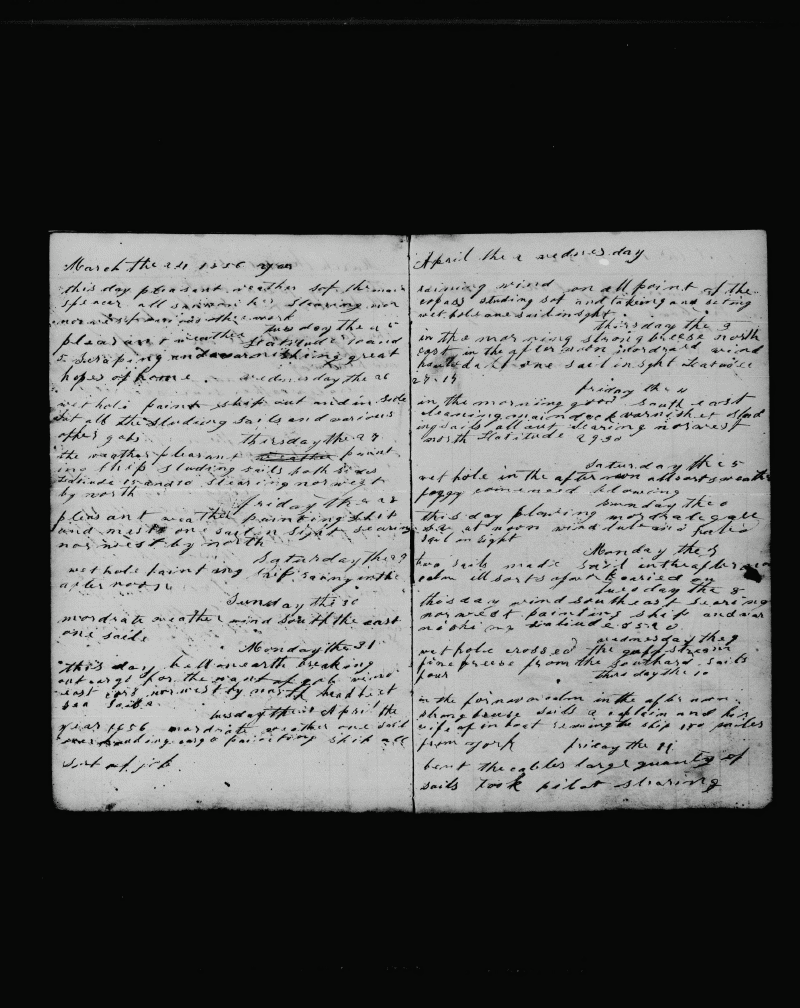 March the 24 1856 year
this day pleasant weather
stearing nor
nor west
pleasant weather tusday the 25
Latitude
5 scraping and varnishing great
hopes of home. wednesday the 26
wet hole paint ship out and in side
but all the studing sails and various
other gobs thirsday the 27
the weather pleasant paint
ing ship studing sails both sides
Latitude stearing nor west
by north
friday the 28
pleasant weather painting ship
and masts one sail on sight stearing
nor west by north
Saturday the 29
wet hole painting raining in the
after noon
Sunday the 30
mordrate weather wind South the east
one saile
Monday the 31
this day hall on earth breaking
out cargo for the want of gob wind
east nor west by north
sails
tusday the April the
year 1856 mordrate weather one sail
over handing cargo painting ship all
sort of job
April the 2 wednesday
raining wind on all point of the
copass studing sof and takeing and seting
wet hole one sail in sight
thirsday the 3
in the morning strong breeze north
east in the after noon mordrate wind
one sail in sight Latitude
27-19
friday the 4
in the morning good south east
cleaning main deck varnished stud
ing sails all out stearing nor west
north Latitude 29 30
Saturday the 5
wet hole in the afternoon all sorts weather
foggy comenced blowing
Sunday the 6
this day blowing mordrate gale
at noon wind
sail on sight
Monday the 7
two sails made sail in the afternoon
calm all sorts of work caried on
tusday the 8
this day wind south east stearing
nor west painting ship and var
nishing Latitude
wednesday the 9
wet hole crossed the gulf stream
fine breeze from the Southard sails
four thirsday the 10
in the fornoon calm in the after noon
strong breese sails a captain and his
wife of in boat the ship 180 miles
from york friday the 11
bent the cables large quanty of
sails took pilot stearing